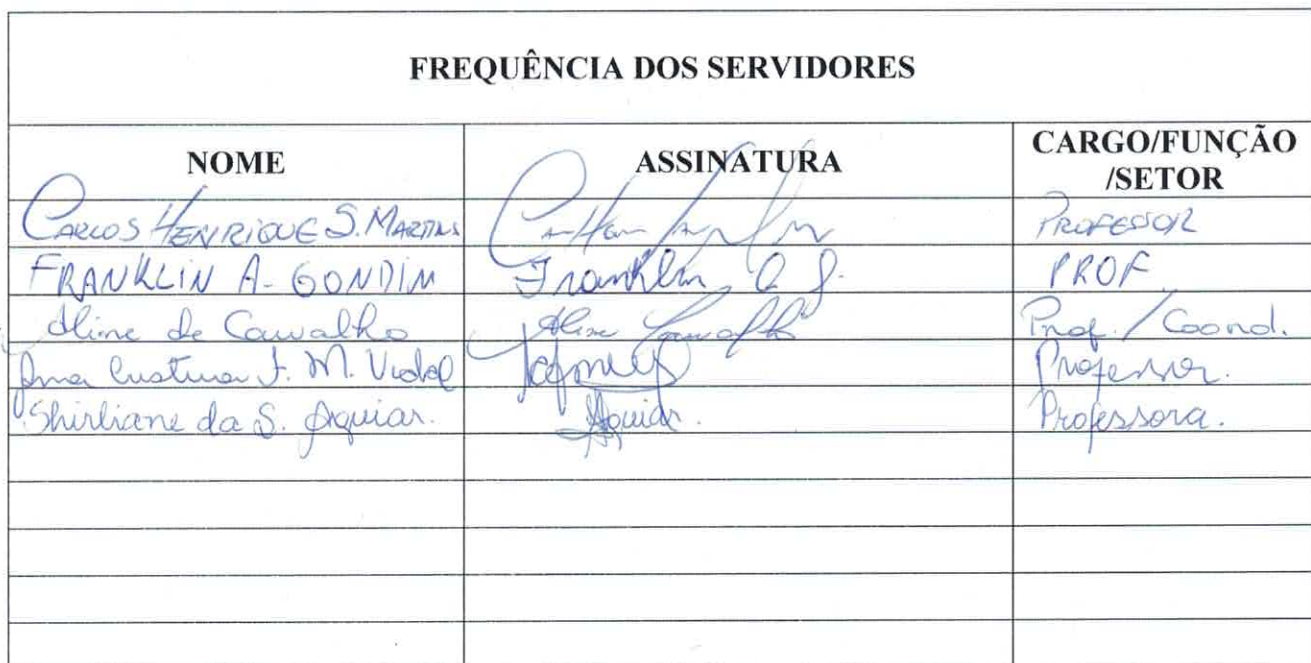 FREQUÊNCIA DOS SERVIDORES
NOME ASSINATURA CARGO/FUNÇÃO
/SETOR
CARLOS HENRIQUE S. MARTINS PROFESSOR
FRANKLIN A. GONDIM Franklin A G. PROF
Aline de Carvalho Aline Carvalho Prof. / Coord.
Ana Cristina F. M. Vidal Professor.
Shirliane da S. Aguiar. Aguiar. Professora.